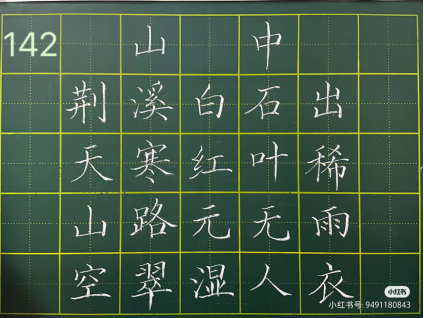 142
山中
荆溪白石出
天寒红叶稀
山路元无雨
空翠湿人衣
小红书
小红书号: 9491180843